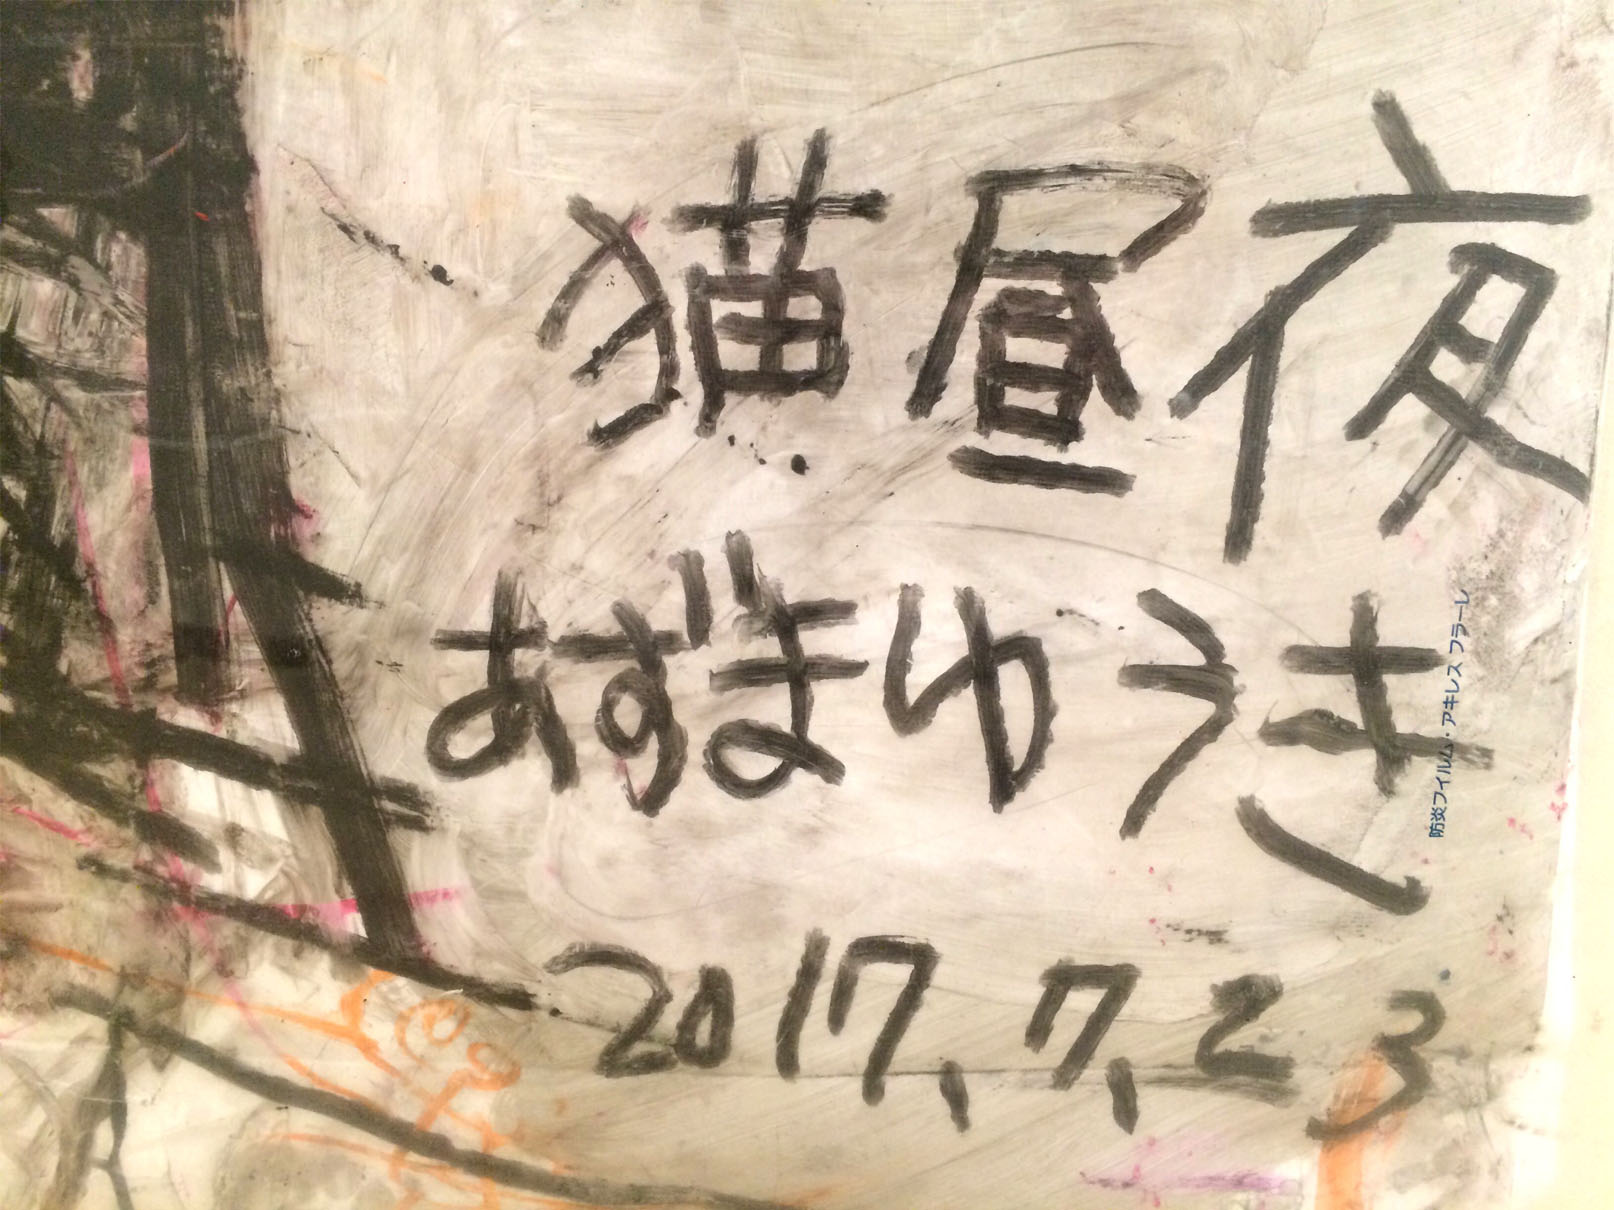 猫昼夜
あずまゆうき
2017,7,23
防炎フィルム・アキレス フラーレ